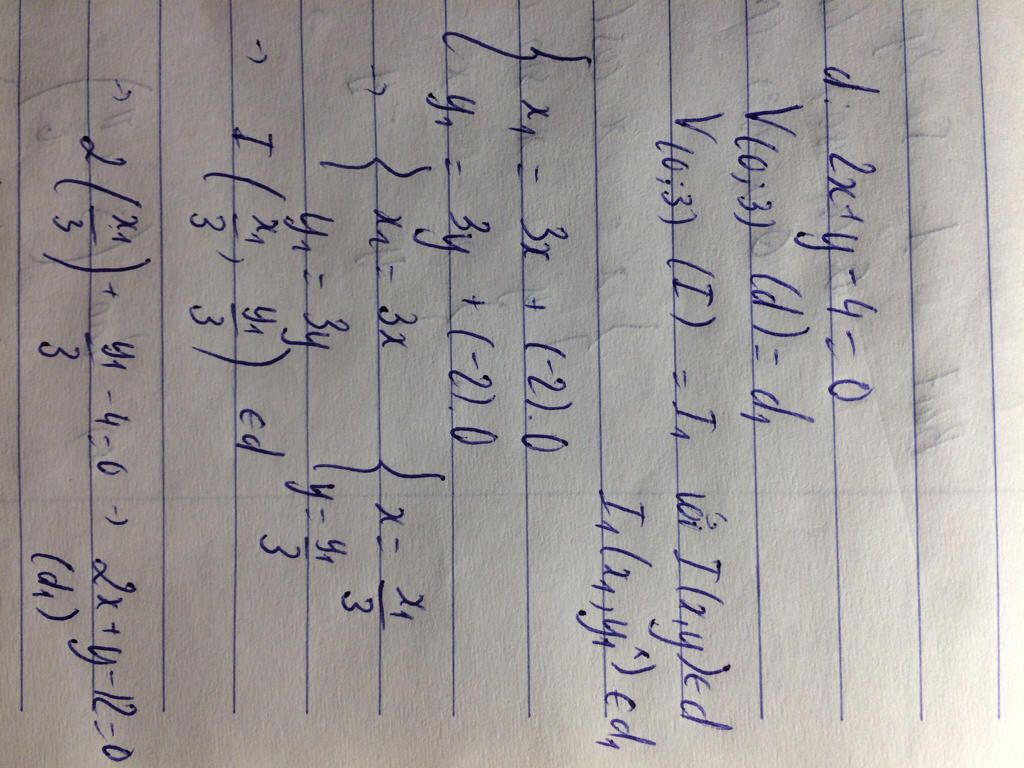 d: 2x+y-4=0
V(0;3) (d) = d₁
V(0;3) (I) = I₁ với I(x,y)∈d
I₁(x₁,y₁)∈d₁
{ x₁ = 3x + (-2).0
y₁ = 3y + (-2).0
→ { x₁ = 3x { x = x₁/3
y₁ = 3y y = y₁/3
→ I (x₁/3, y₁/3) ∈d
→ 2(x₁/3) + y₁/3 - 4=0 → 2x+y-12=0
(d₁)